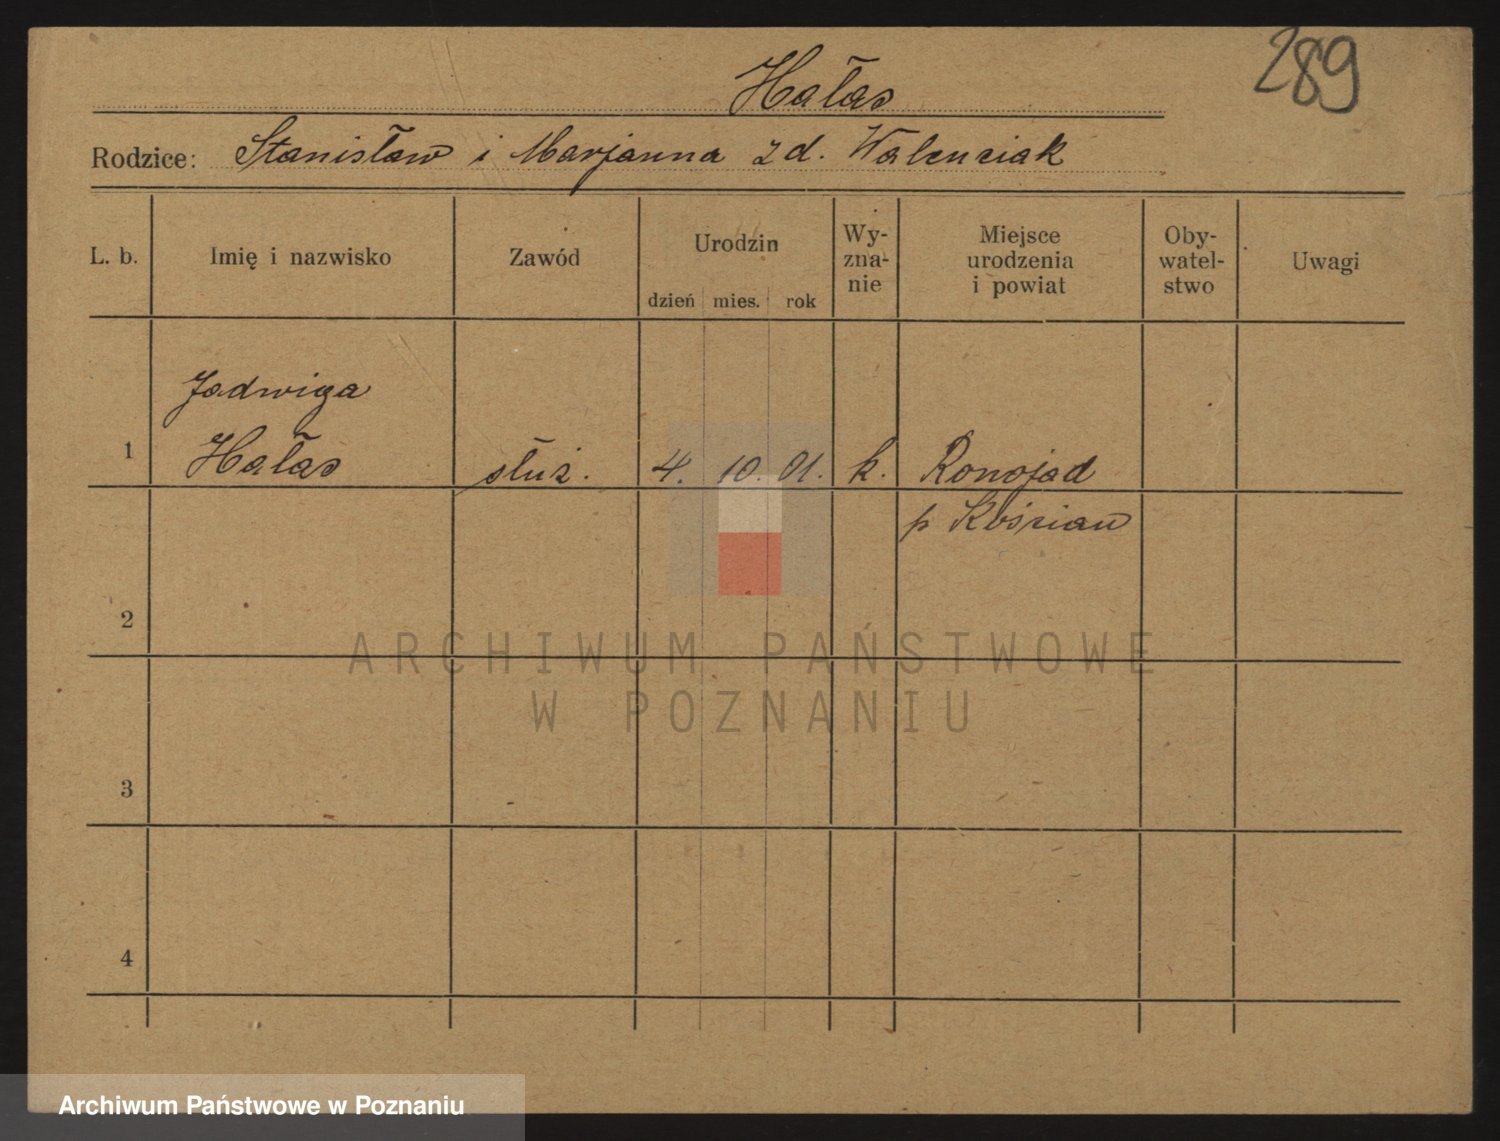 289
Hałas
Rodzice: Stanisław i Marjanna z d. Walenciak
L. b.
Imię i nazwisko
Zawód
Urodzin
dzień mies. rok
Wy-
zna-
nie
Miejsce
urodzenia
i powiat
Oby-
watel-
stwo
Uwagi
Jadwiga
1 Hałas służ. 4. 10. 01. k. Ronojad
p Kościan
2
3
4
ARCHIWUM PAŃSTWOWE
W POZNANIU
Archiwum Państwowe w Poznaniu